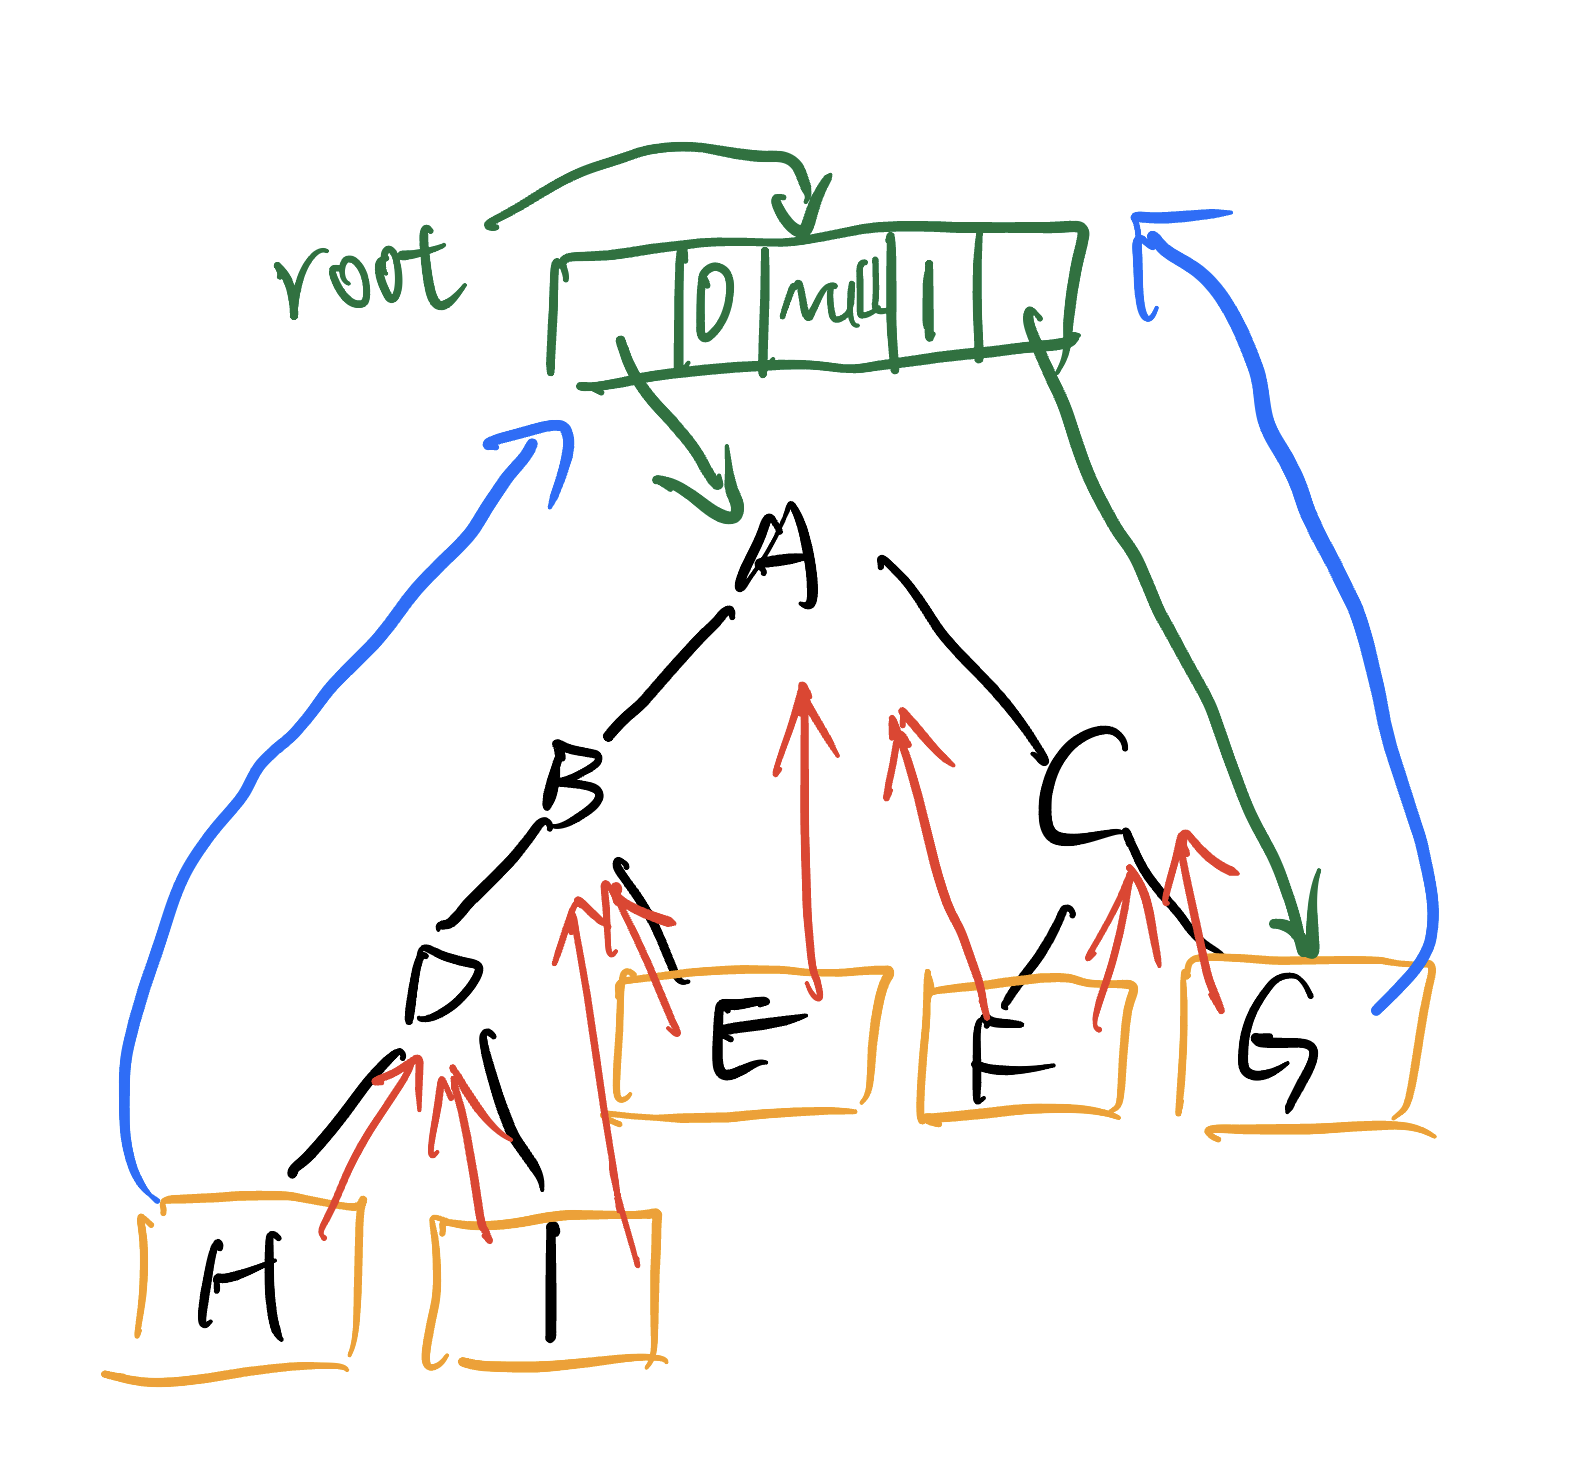 root
0 null 1
A
B C
D E F G
H I